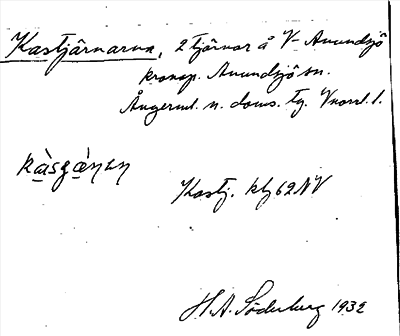 Kastjärnarna, 2 tjärnar å V. Anundsjö
kronop. Anundsjö sn.
Ångerml. n. doms. tg. Vnorrl. l.
Kastj. kbl 62 NV
H. A. Söderberg 1932